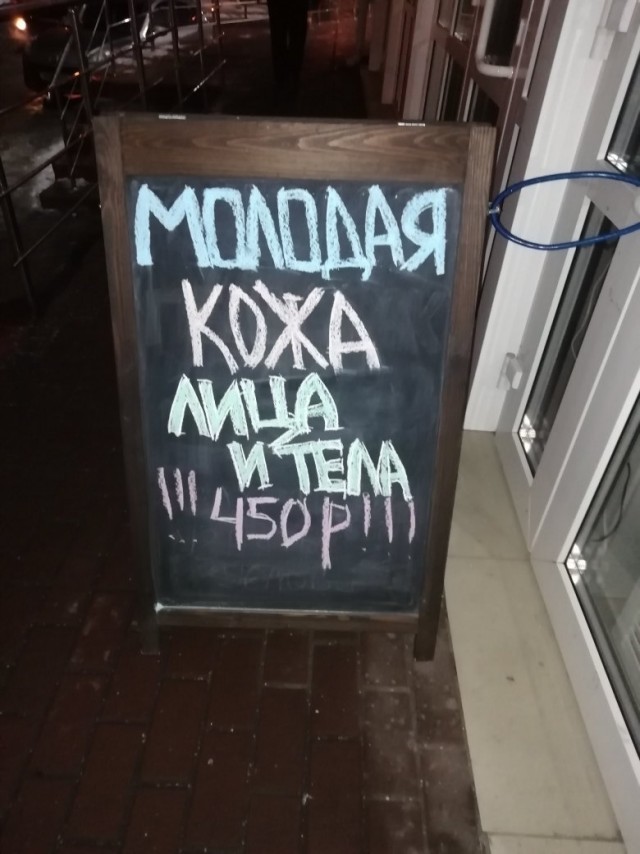 МОЛОДАЯ
КОЖА
ЛИЦА
И ТЕЛА
!!! 450 р!!!